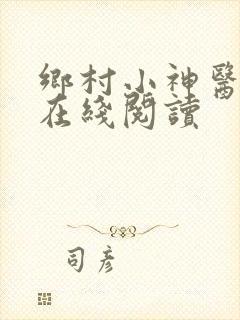 鄉村小神醫
在綫閱讀
司彥